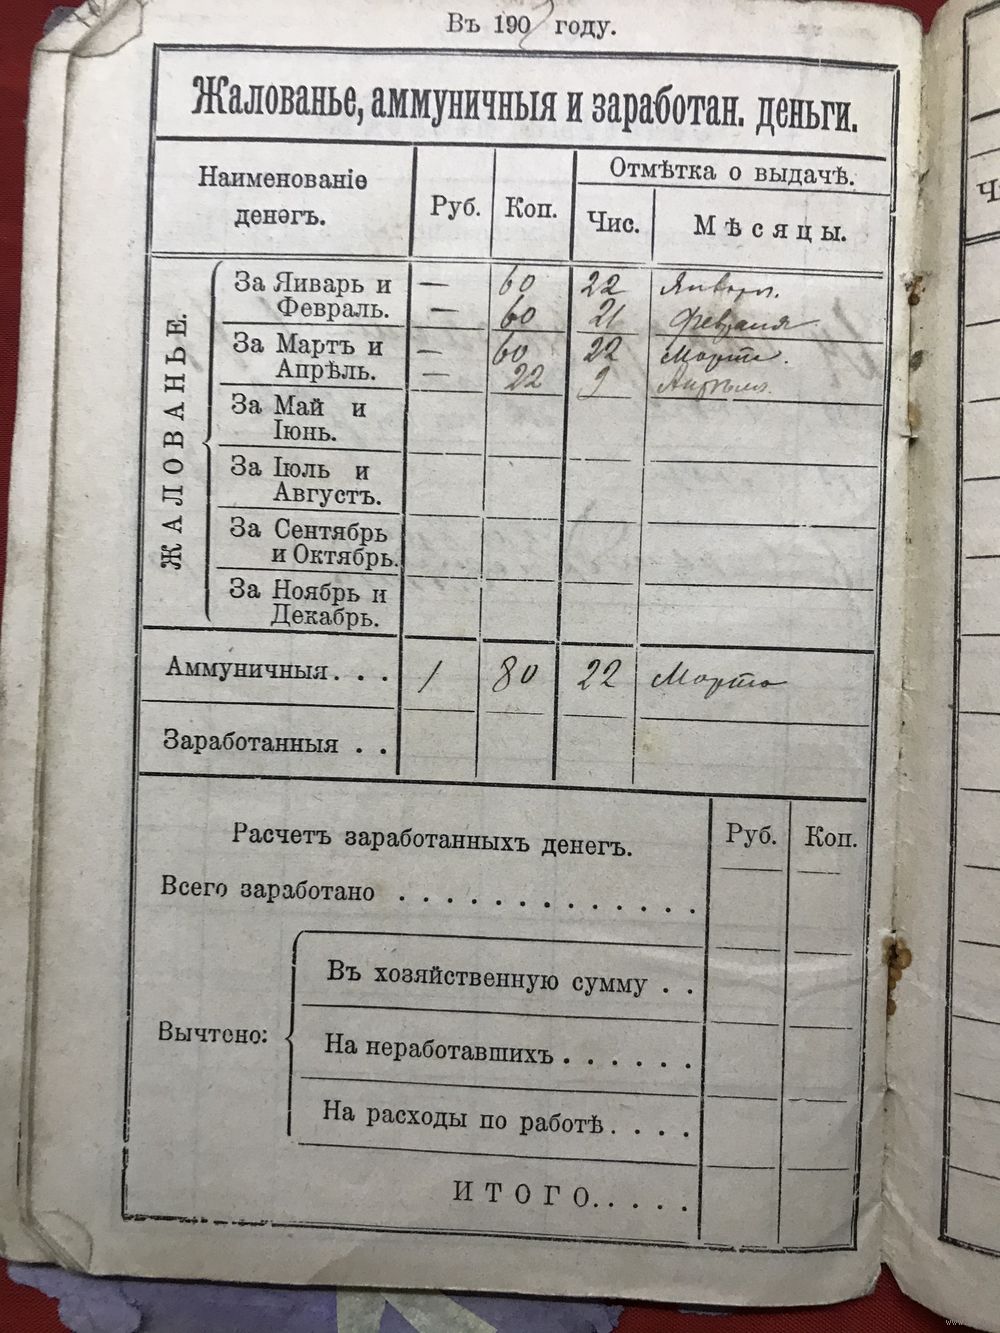 Въ 190 году.
Жалованье, аммуничныя и заработан. деньги.
Наименованіе
денегъ.
Руб.
Коп.
Отмѣтка о выдачѣ.
Чис.
Мѣсяцы.
ЖАЛОВАНЬЕ.
За Январь и — 60 22 Января.
Февраль. — 60 21 Февраля
За Мартъ и — 60 22 Марта.
Апрѣль. — 22 9 Апрѣля.
За Май и
Іюнь.
За Іюль и
Августъ.
За Сентябрь
и Октябрь.
За Ноябрь и
Декабрь.
Аммуничныя . . . 1 80 22 Марта
Заработанныя . .
Расчетъ заработанныхъ денегъ.
Руб. Коп.
Всего заработано . . . . . . . . . . . . .
Вычтено:
Въ хозяйственную сумму . .
На неработавшихъ . . . . . .
На расходы по работѣ . . . .
ИТОГО. . . . .